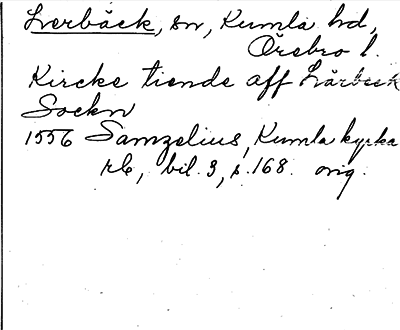 Lerbäck, sn, Kumla hd,
Örebro l.
Kircke tiende aff Lärbeck
Sockn
1556 Samzelius, Kumla kyrka
rb, bil. 3, s. 168. orig.